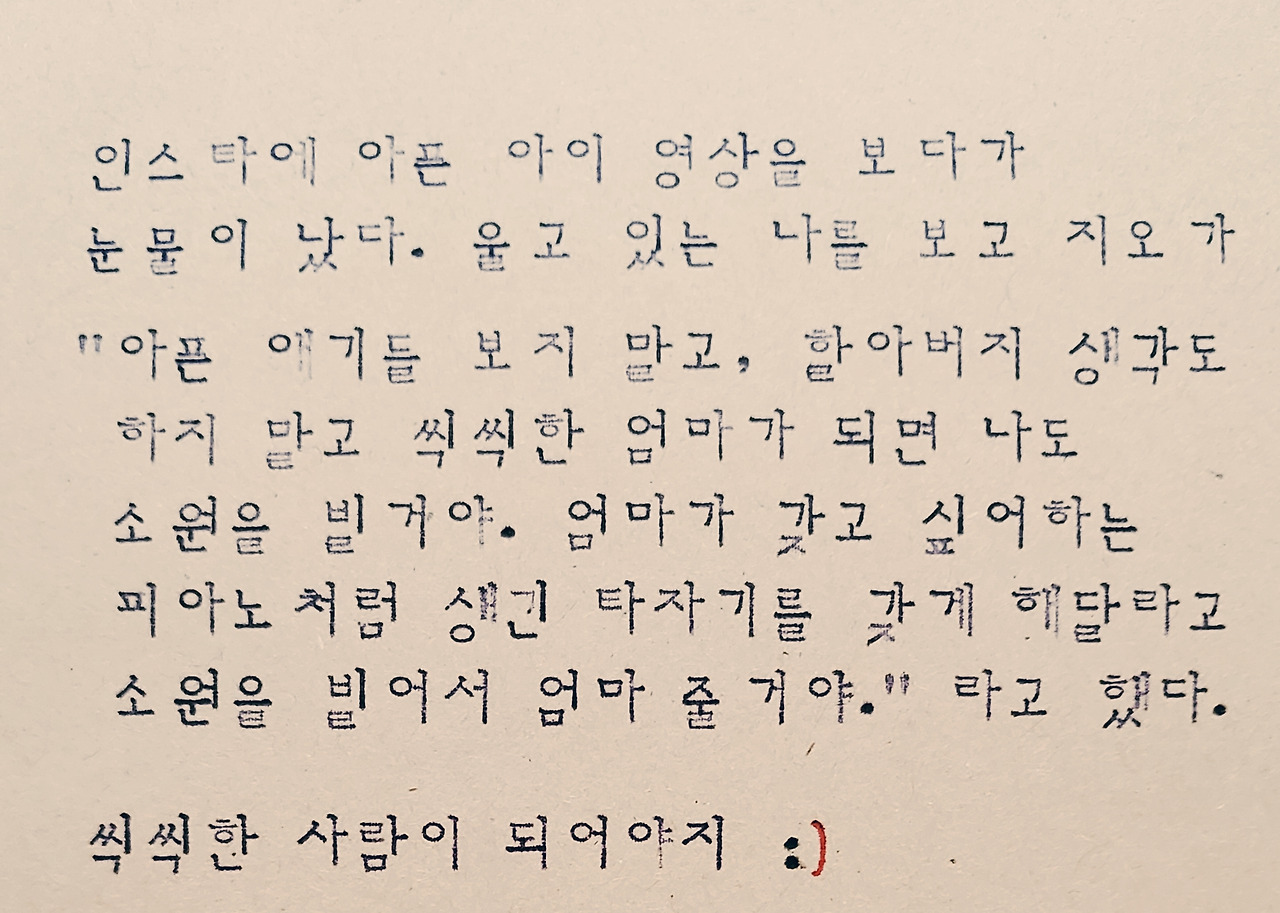 인스타에 아픈 아이 영상을 보다가
눈물이 났다. 울고 있는 나를 보고 지오가
"아픈 애기들 보지 말고, 할아버지 생각도
하지 말고 씩씩한 엄마가 되면 나도
소원을 빌거야. 엄마가 갖고 싶어하는
피아노처럼 생긴 타자기를 갖게 해달라고
소원을 빌어서 엄마 줄거야." 라고 했다.
씩씩한 사람이 되어야지 :)